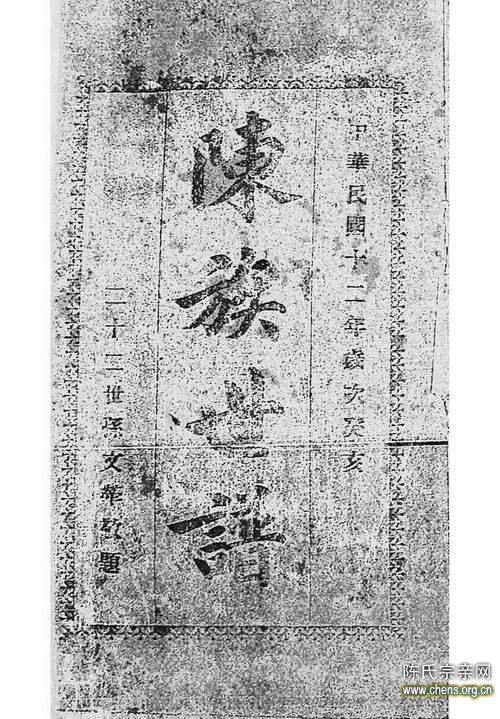 中華民國十二年歲次癸亥
陳族世譜
二十三世孫文華敬題
陈氏宗亲网
www.chens.org.cn